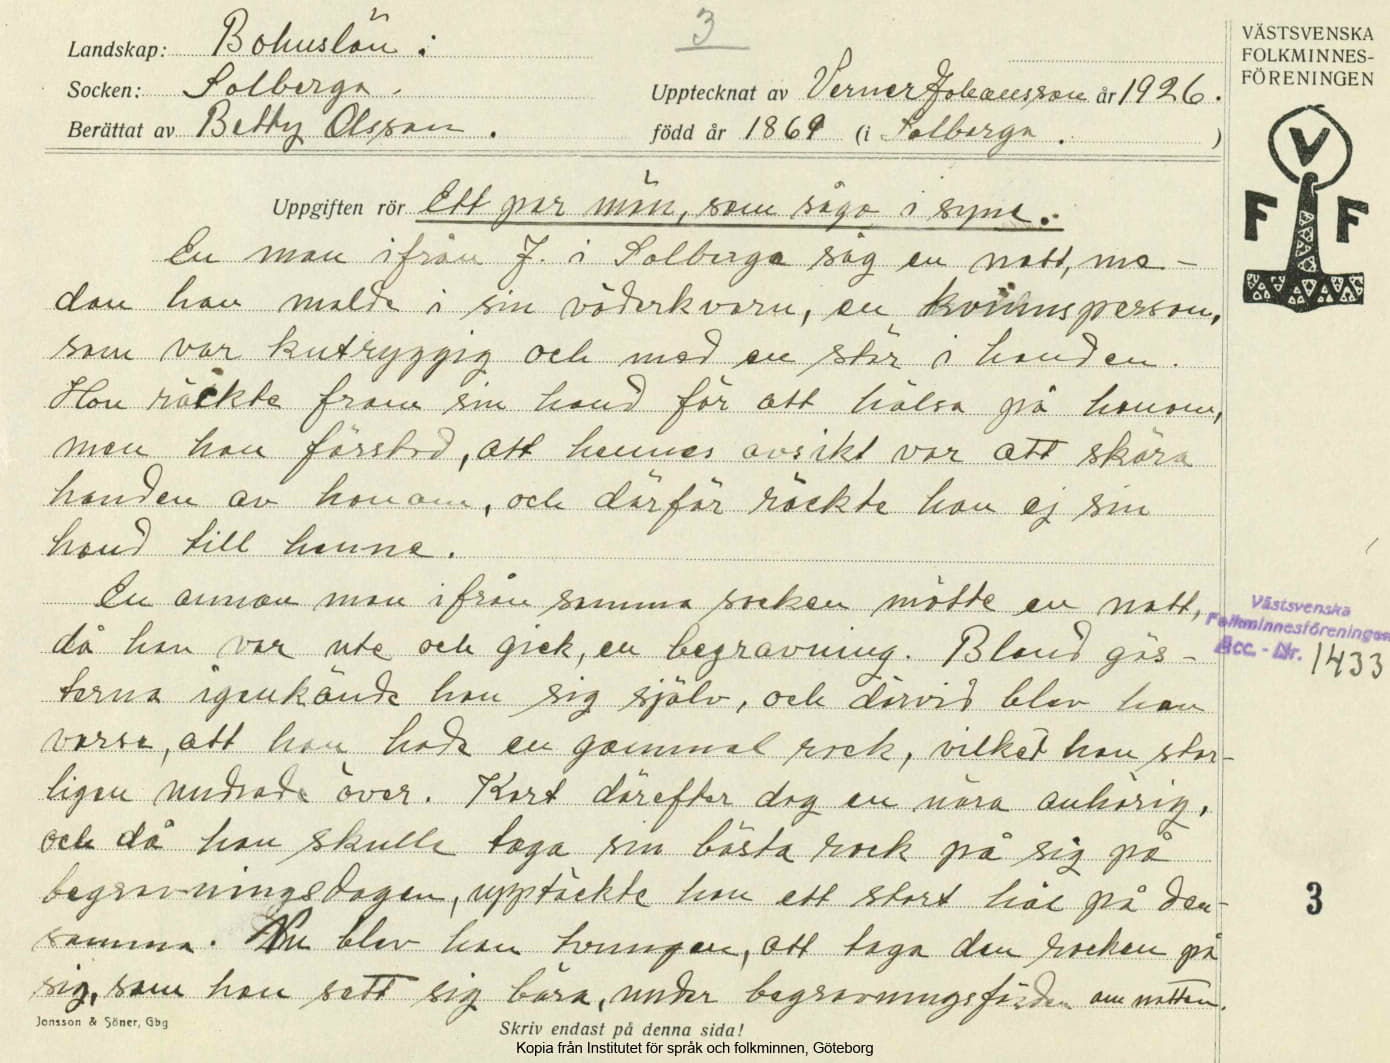 3
Landskap: Bohuslän:
Socken: Solberga.
Berättat av Betty Olsson.
Upptecknat av Verner Johansson år 1926.
född år 1869 (i Solberga. )
VÄSTSVENSKA
FOLKMINNES-
FÖRENINGEN
V
F F
Uppgiften rör Ett par män, som sågo i syne.
En man ifrån J. i Solberga såg en natt, me-
dan han malde i sin väderkvarn, en kvinnsperson,
som var kutryggig och med en stör i handen.
Hon räckte fram sin hand för att hälsa på honom,
men han förstod, att hennes avsikt var att skära
handen av honom, och därför räckte han ej sin
hand till henne.
En annan man ifrån samma socken mötte en natt,
då han var ute och gick, en begravning. Bland gäs-
terna igenkände han sig själv, och därvid blev han
varse, att han hade en gammal rock, vilket han stor-
ligen undrade över. Kort därefter dog en nära anhörig,
och då han skulle taga sin bästa rock på sig på
begravningsdagen, upptäckte han ett stort hål på den-
samma. Nu blev han tvungen, att taga den rocken på
sig, som han sett sig bära, under begravningsfärden om natten.
Västsvenska
Folkminnesföreningens
Acc. - Nr. 1433
3
Jonsson & Söner, Gbg
Skriv endast på denna sida!
Kopia från Institutet för språk och folkminnen, Göteborg